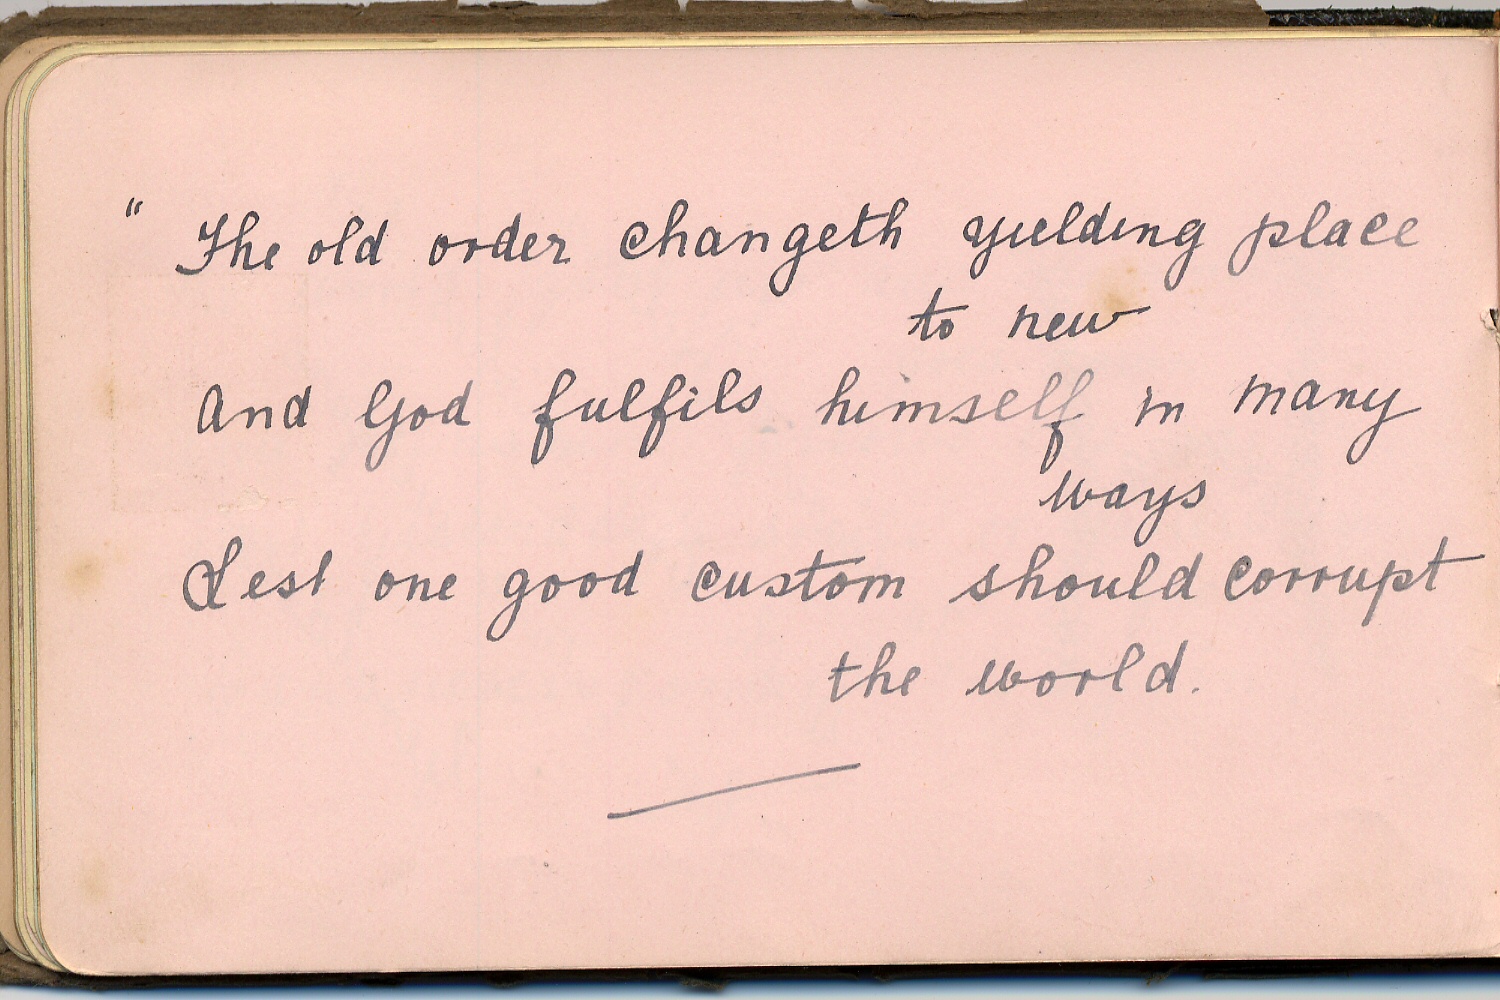 “ The old order changeth yielding place
to new
And God fulfils himself in many
ways
Lest one good custom should corrupt
the world.